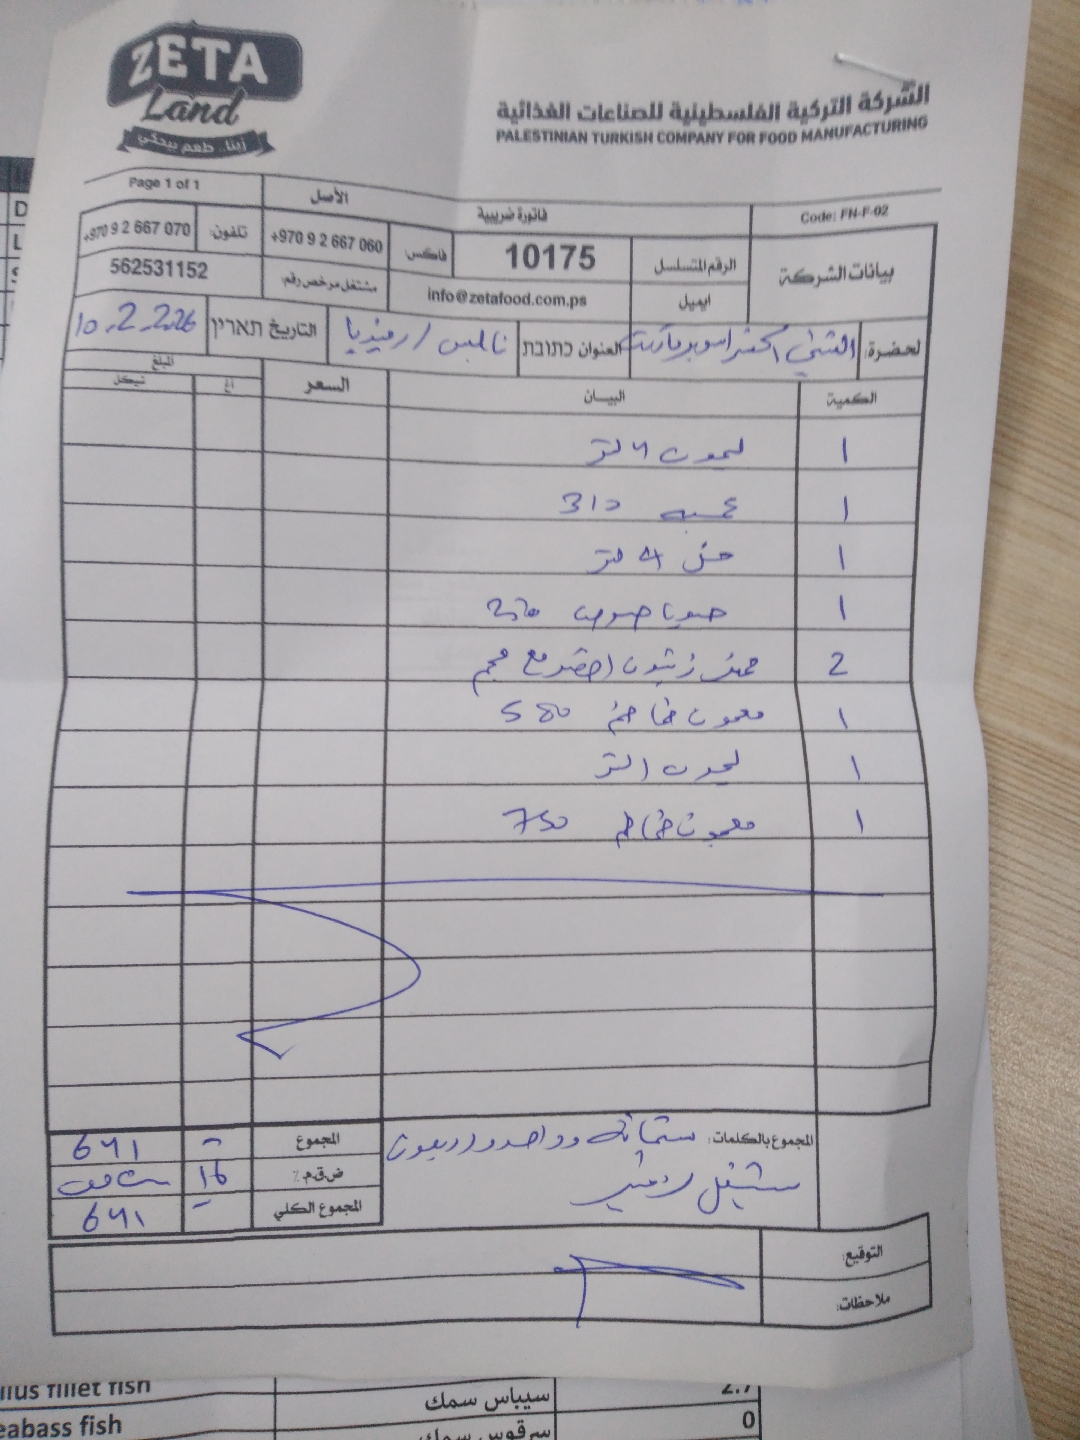 ZETA
Land
زيتا.. طعم بيحكي
الشركة التركية الفلسطينية للصناعات الغذائية
PALESTINIAN TURKISH COMPANY FOR FOOD MANUFACTURING
Code: FN-F-02 فاتورة ضريبية الأصل Page 1 of 1
بيانات الشركة الرقم المتسلسل 10175 فاكس: +970 9 2 667 060 تلفون: +970 9 2 667 070
ايميل info@zetafood.com.ps مشتغل مرخص رقم: 562531152
لحضرة: العنوان כתובת نابلس / رفيديا التاريخ תאריך 10.2.2026
المبلغ
الكمية البيــان السعر اغ شيكل
1 ليمون 4 لتر
1
1 خل 4 لتر
1 صويا صوص
2 زيتون اخضر مع
1 معجون طماطم 580
1 ليمون 1 لتر
1 معجون طماطم 750
المجموع بالكلمات: ستمائة وواحد واربعون المجموع - 641
شيقل ض.ق.م.٪ 16
المجموع الكلي - 641
التوقيع:
ملاحظات:
fillet fish
سيباس سمك 2.7
eabass fish سرقوس سمك 0